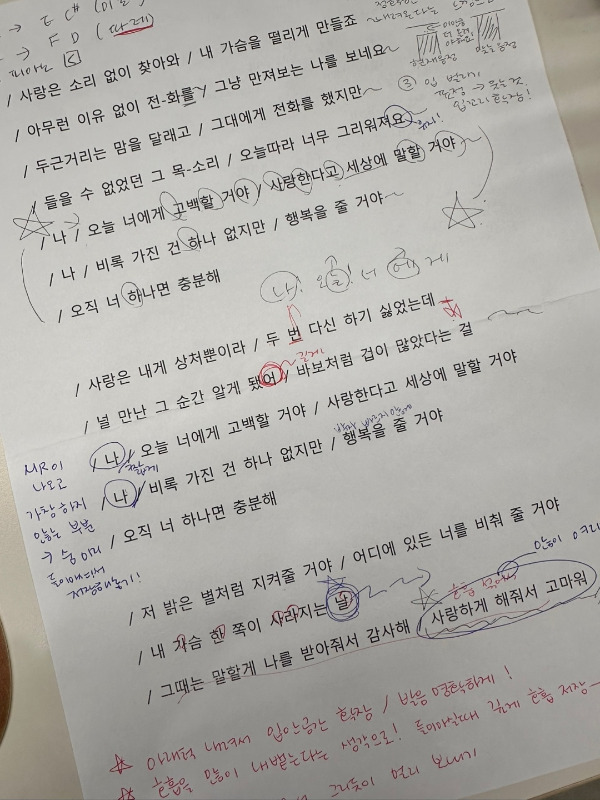 → E C#
→ F D (따레)
피아노 C
/ 사랑은 소리 없이 찾아와 / 내 가슴을 떨리게 만들죠
/ 아무런 이유 없이 전-화를 / 그냥 만져보는 나를 보네요~
/ 두근거리는 맘을 달래고 / 그대에게 전화를 했지만~
③ 입 벌리기
표정 → 웃는 것
입꼬리 확장!
/ 들을 수 없었던 그 목-소리 / 오늘따라 너무 그리워져요
/ 나 / 오늘 너에게 고백할 거야 / 사랑한다고 세상에 말할 거야
/ 나 / 비록 가진 건 하나 없지만 / 행복을 줄 거야~
/ 오직 너 하나면 충분해
나! 오늘! 너 에 게
/ 사랑은 내게 상처뿐이라 / 두 번 다신 하기 싫었는데
~길게
/ 널 만난 그 순간 알게 됐어 / 바보처럼 겁이 많았다는 걸
/ 나 / 오늘 너에게 고백할 거야 / 사랑한다고 세상에 말할 거야
짧게
/ 나 / 비록 가진 건 하나 없지만 / 행복을 줄 거야
/ 오직 너 하나면 충분해
MR이
나오고
가창하지
않는 부분
→ 숨 미리
들이마셔서
저장해놓기!
/ 저 밝은 별처럼 지켜줄 거야 / 어디에 있든 너를 비춰 줄 거야
호흡 섞어서
/ 내 가슴 한 쪽이 사라지는 날
/ 그때는 말할게 나를 받아줘서 감사해 / 사랑하게 해줘서 고마워
☆ 아래턱 내려서 입안공간 확장 / 발음 명확하게!
☆ 호흡을 많이 내뱉는다는 생각으로! 들이마실때 깊게 호흡 저장
멀리 보내기